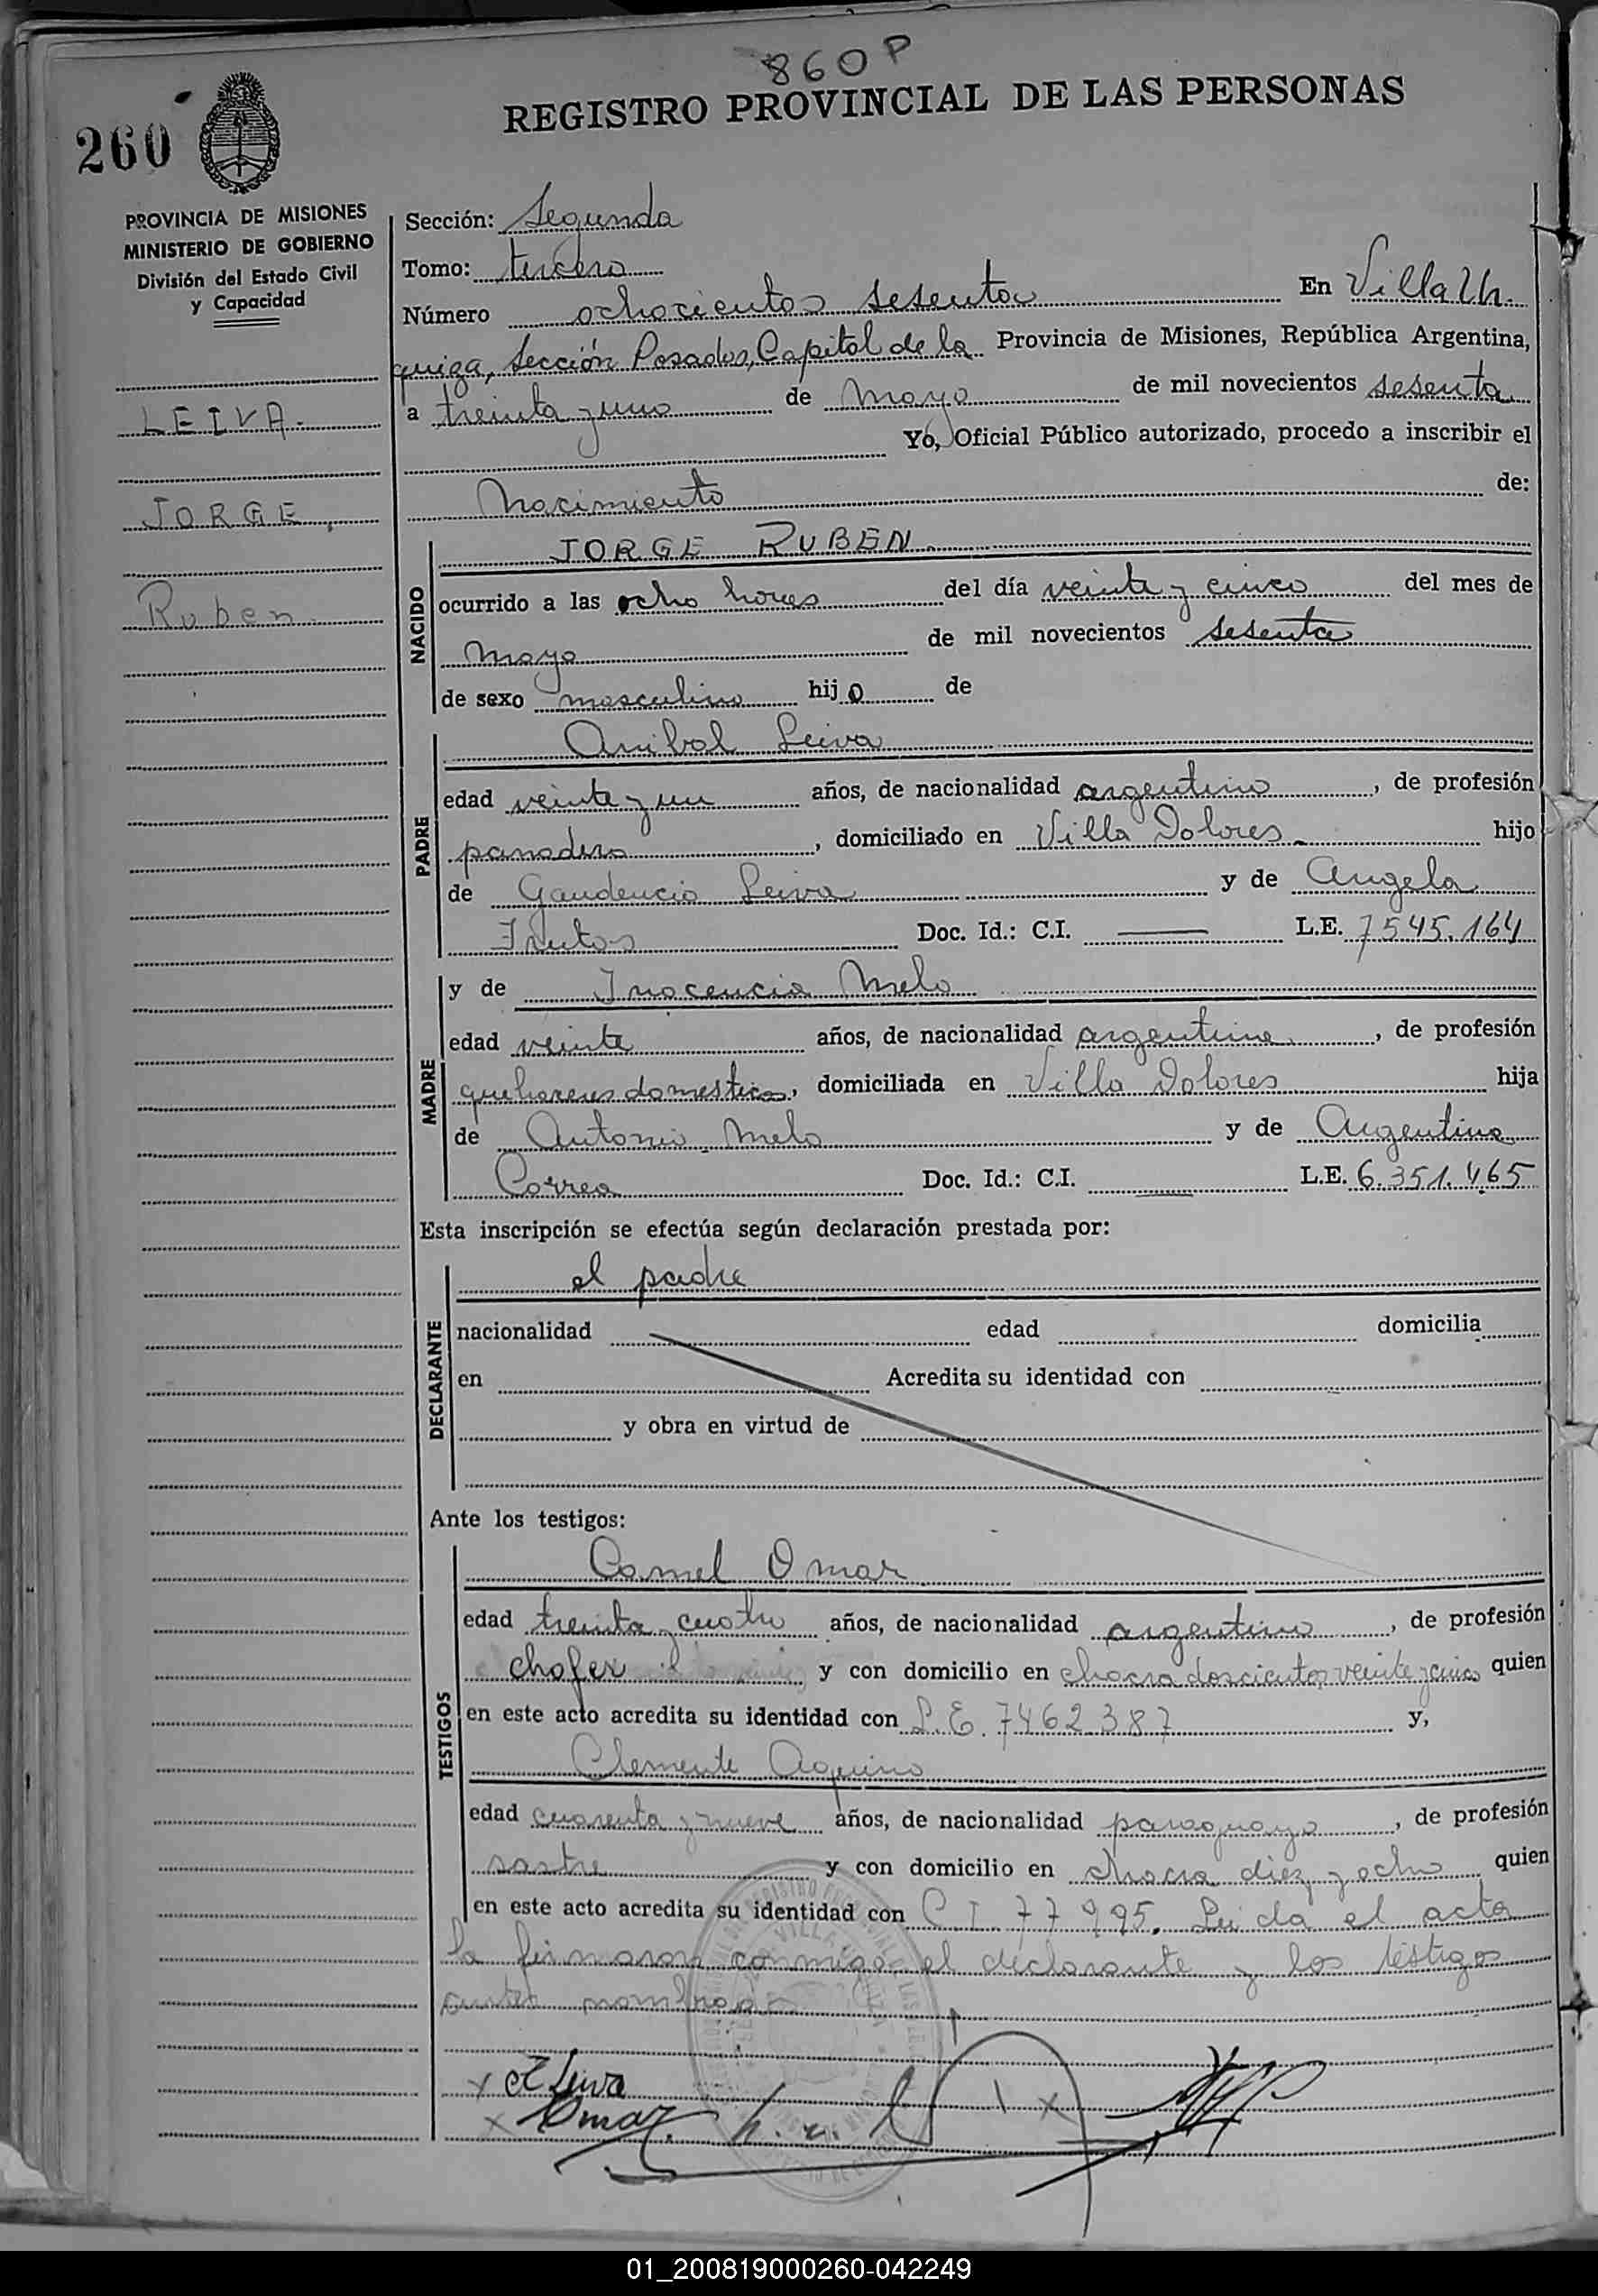 860 P
260
REGISTRO PROVINCIAL DE LAS PERSONAS
PROVINCIA DE MISIONES
MINISTERIO DE GOBIERNO
División del Estado Civil
y Capacidad
LEIVA.
JORGE,
Ruben
Sección: Segunda
Tomo: tercero
Número ochocientos sesenta En Villa Ur.
quiza, Sección Posadas, Capital de la Provincia de Misiones, República Argentina,
a treinta y uno de mayo de mil novecientos sesenta
Yo, Oficial Público autorizado, procedo a inscribir el
Nacimiento de:
NACIDO
JORGE RUBEN
ocurrido a las ocho horas del día veinte y cinco del mes de
mayo de mil novecientos sesenta
de sexo masculino hijo de
PADRE
Anibal Leiva
edad veinte y un años, de nacionalidad argentino, de profesión
panadero, domiciliado en Villa Dolores hijo
de Gaudencio Leiva y de Angela
Frutos Doc. Id.: C.I. —— L.E. 7545.164
MADRE
y de Inocencia Melo
edad veinte años, de nacionalidad argentina, de profesión
quehaceres domesticos, domiciliada en Villa Dolores hija
de Antonio Melo y de Argentina
Correa Doc. Id.: C.I. L.E. 6.351.465
Esta inscripción se efectúa según declaración prestada por:
DECLARANTE
el padre
nacionalidad edad domicilia
en Acredita su identidad con
y obra en virtud de
Ante los testigos:
TESTIGOS
Camel Omar
edad treinta y cuatro años, de nacionalidad argentino, de profesión
chofer y con domicilio en chacra doscientos veinte y cinco quien
en este acto acredita su identidad con L.E. 7462387 y,
Clemente Aquino
edad cuarenta y nueve años, de nacionalidad paraguayo, de profesión
sastre y con domicilio en chacra diez y ocho quien
en este acto acredita su identidad con C I 77995. Leida el acta
la firmaron conmigo el declarante y los testigos
nombrados
x A Leiva
x Omar
01_200819000260-042249